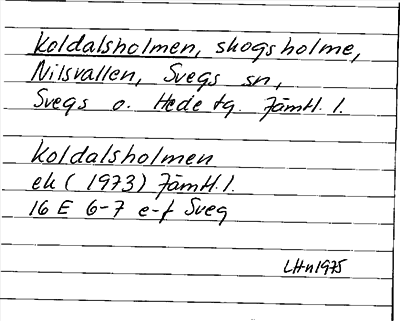 Koldalsholmen, skogsholme,
Nilsvallen, Svegs sn,
Svegs o. Hede tg. Jämtl. l.
Koldalsholmen
ek (1973) Jämtl. l.
16 E 6-7 e-f Sveg
LHn 1975